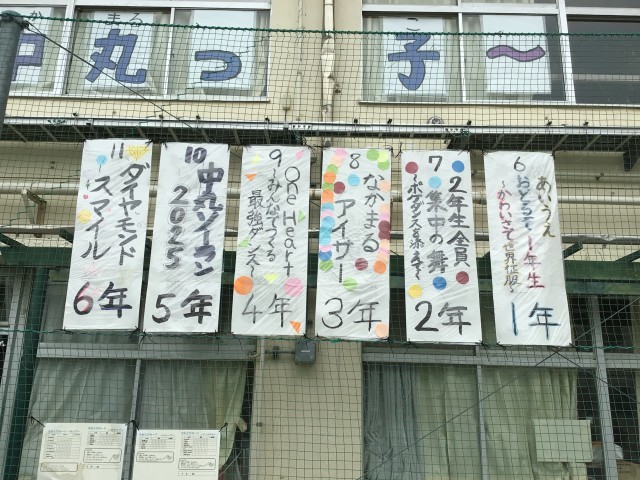 か まる こ
中丸っ子〜
11
ダイヤモンド
スマイル
6年
10
中丸ソーラン
2025
5年
9
One Heart
〜みんなでつくる
最強ダンス〜
4年
8
なかまる
アイザー
3年
7
2年生全員
集中の舞
2年
6
あいうえ
おどるぞ!1年生
〜かわいさで世界征服〜
1年